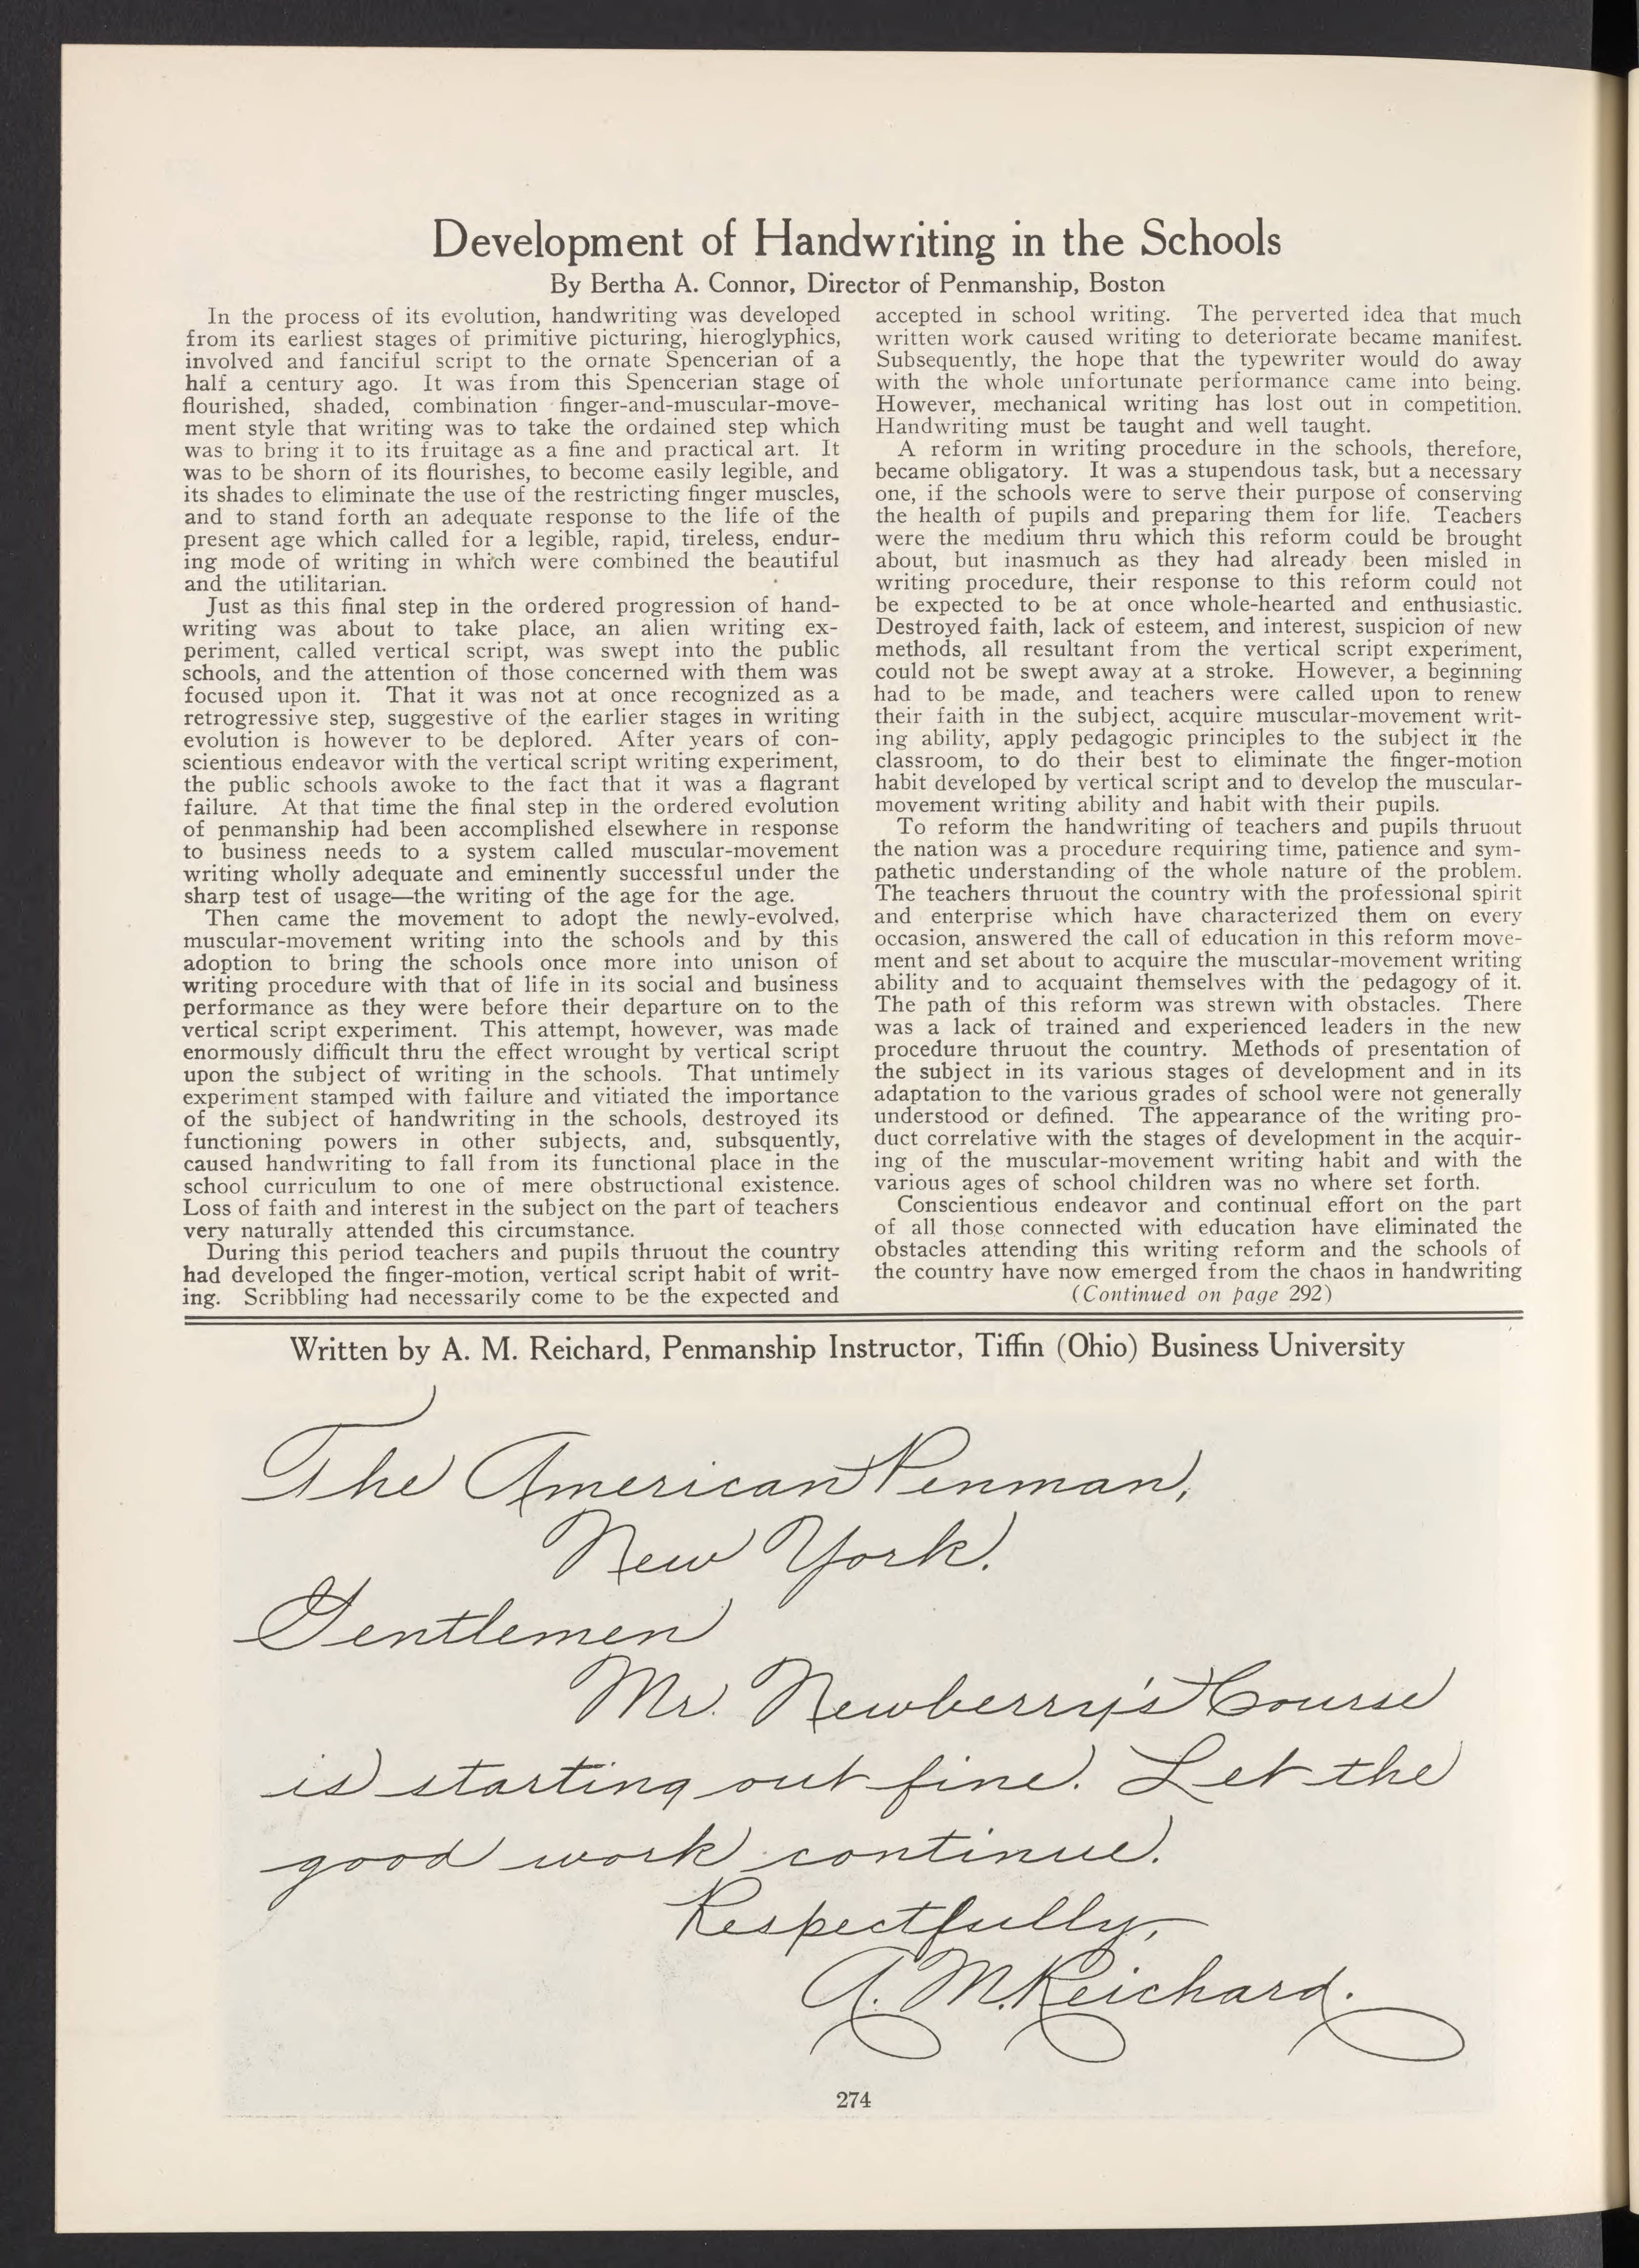 Development of Handwriting in the Schools
By Bertha A. Connor, Director of Penmanship, Boston
In the process of its evolution, handwriting was developed
from its earliest stages of primitive picturing, hieroglyphics,
involved and fanciful script to the ornate Spencerian of a
half a century ago. It was from this Spencerian stage of
flourished, shaded, combination finger-and-muscular-move-
ment style that writing was to take the ordained step which
was to bring it to its fruitage as a fine and practical art. It
was to be shorn of its flourishes, to become easily legible, and
its shades to eliminate the use of the restricting finger muscles,
and to stand forth an adequate response to the life of the
present age which called for a legible, rapid, tireless, endur-
ing mode of writing in which were combined the beautiful
and the utilitarian.
Just as this final step in the ordered progression of hand-
writing was about to take place, an alien writing ex-
periment, called vertical script, was swept into the public
schools, and the attention of those concerned with them was
focused upon it. That it was not at once recognized as a
retrogressive step, suggestive of the earlier stages in writing
evolution is however to be deplored. After years of con-
scientious endeavor with the vertical script writing experiment,
the public schools awoke to the fact that it was a flagrant
failure. At that time the final step in the ordered evolution
of penmanship had been accomplished elsewhere in response
to business needs to a system called muscular-movement
writing wholly adequate and eminently successful under the
sharp test of usage—the writing of the age for the age.
Then came the movement to adopt the newly-evolved,
muscular-movement writing into the schools and by this
adoption to bring the schools once more into unison of
writing procedure with that of life in its social and business
performance as they were before their departure on to the
vertical script experiment. This attempt, however, was made
enormously difficult thru the effect wrought by vertical script
upon the subject of writing in the schools. That untimely
experiment stamped with failure and vitiated the importance
of the subject of handwriting in the schools, destroyed its
functioning powers in other subjects, and, subsquently,
caused handwriting to fall from its functional place in the
school curriculum to one of mere obstructional existence.
Loss of faith and interest in the subject on the part of teachers
very naturally attended this circumstance.
During this period teachers and pupils thruout the country
had developed the finger-motion, vertical script habit of writ-
ing. Scribbling had necessarily come to be the expected and
accepted in school writing. The perverted idea that much
written work caused writing to deteriorate became manifest.
Subsequently, the hope that the typewriter would do away
with the whole unfortunate performance came into being.
However, mechanical writing has lost out in competition.
Handwriting must be taught and well taught.
A reform in writing procedure in the schools, therefore,
became obligatory. It was a stupendous task, but a necessary
one, if the schools were to serve their purpose of conserving
the health of pupils and preparing them for life. Teachers
were the medium thru which this reform could be brought
about, but inasmuch as they had already been misled in
writing procedure, their response to this reform could not
be expected to be at once whole-hearted and enthusiastic.
Destroyed faith, lack of esteem, and interest, suspicion of new
methods, all resultant from the vertical script experiment,
could not be swept away at a stroke. However, a beginning
had to be made, and teachers were called upon to renew
their faith in the subject, acquire muscular-movement writ-
ing ability, apply pedagogic principles to the subject in the
classroom, to do their best to eliminate the finger-motion
habit developed by vertical script and to develop the muscular-
movement writing ability and habit with their pupils.
To reform the handwriting of teachers and pupils thruout
the nation was a procedure requiring time, patience and sym-
pathetic understanding of the whole nature of the problem.
The teachers thruout the country with the professional spirit
and enterprise which have characterized them on every
occasion, answered the call of education in this reform move-
ment and set about to acquire the muscular-movement writing
ability and to acquaint themselves with the pedagogy of it.
The path of this reform was strewn with obstacles. There
was a lack of trained and experienced leaders in the new
procedure thruout the country. Methods of presentation of
the subject in its various stages of development and in its
adaptation to the various grades of school were not generally
understood or defined. The appearance of the writing pro-
duct correlative with the stages of development in the acquir-
ing of the muscular-movement writing habit and with the
various ages of school children was no where set forth.
Conscientious endeavor and continual effort on the part
of all those connected with education have eliminated the
obstacles attending this writing reform and the schools of
the country have now emerged from the chaos in handwriting
(Continued on page 292)
Written by A. M. Reichard, Penmanship Instructor, Tiffin (Ohio) Business University
The American Penman,
New York.
Gentlemen
Mr. Newberry's Course
is starting out fine. Let the
good work continue.
Respectfully,
A. M. Reichard.
274